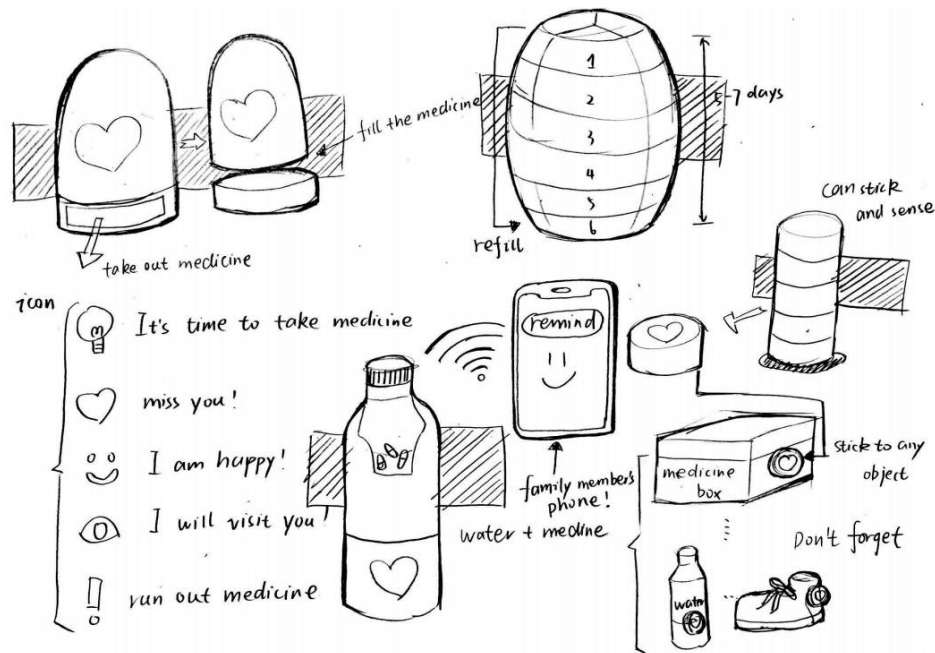 fill the medicine
take out medicine
1
2
3
4
5
6
5-7 days
refill
can stick
and sense
icon
It's time to take medicine
miss you!
I am happy!
I will visit you!
run out medicine
remind
family member's
phone!
water + medine
medicine
box
stick to any
object
Don't forget
water